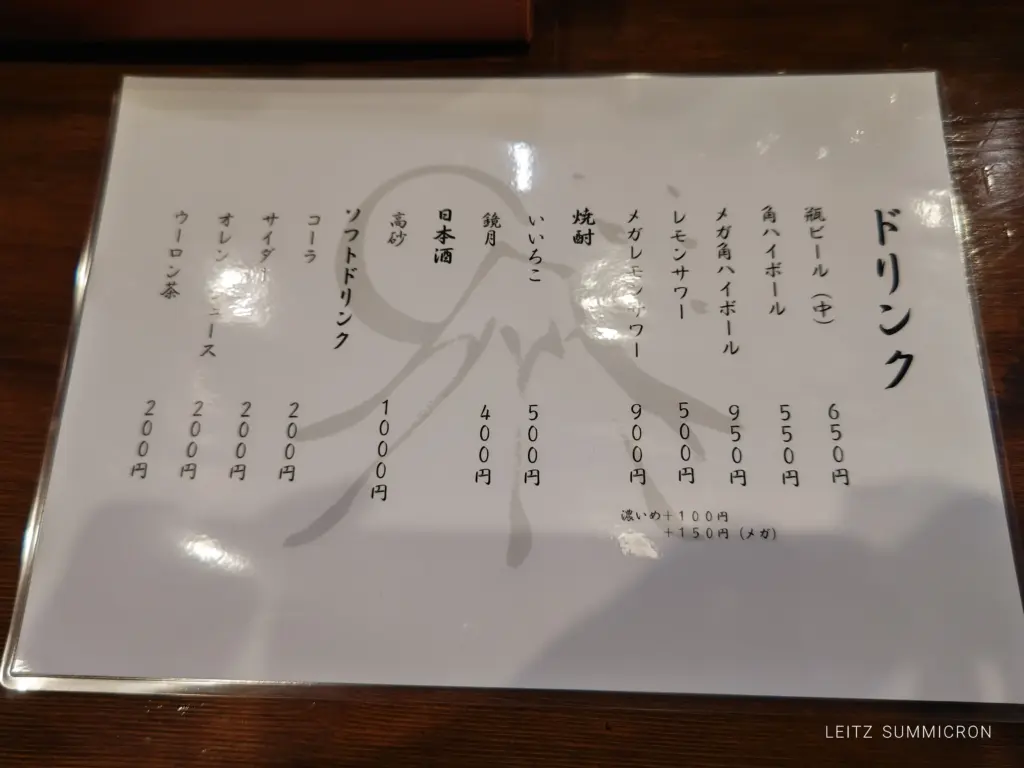 ドリンク
瓶ビール（中） 650円
角ハイボール 550円
メガ角ハイボール 950円
レモンサワー 500円
メガレモンサワー 900円
濃いめ＋100円
＋150円（メガ）
焼酎
いいちこ 500円
鏡月 400円
日本酒
高砂 1000円
ソフトドリンク
コーラ 200円
サイダー 200円
オレンジジュース 200円
ウーロン茶 200円
LEITZ SUMMICRON